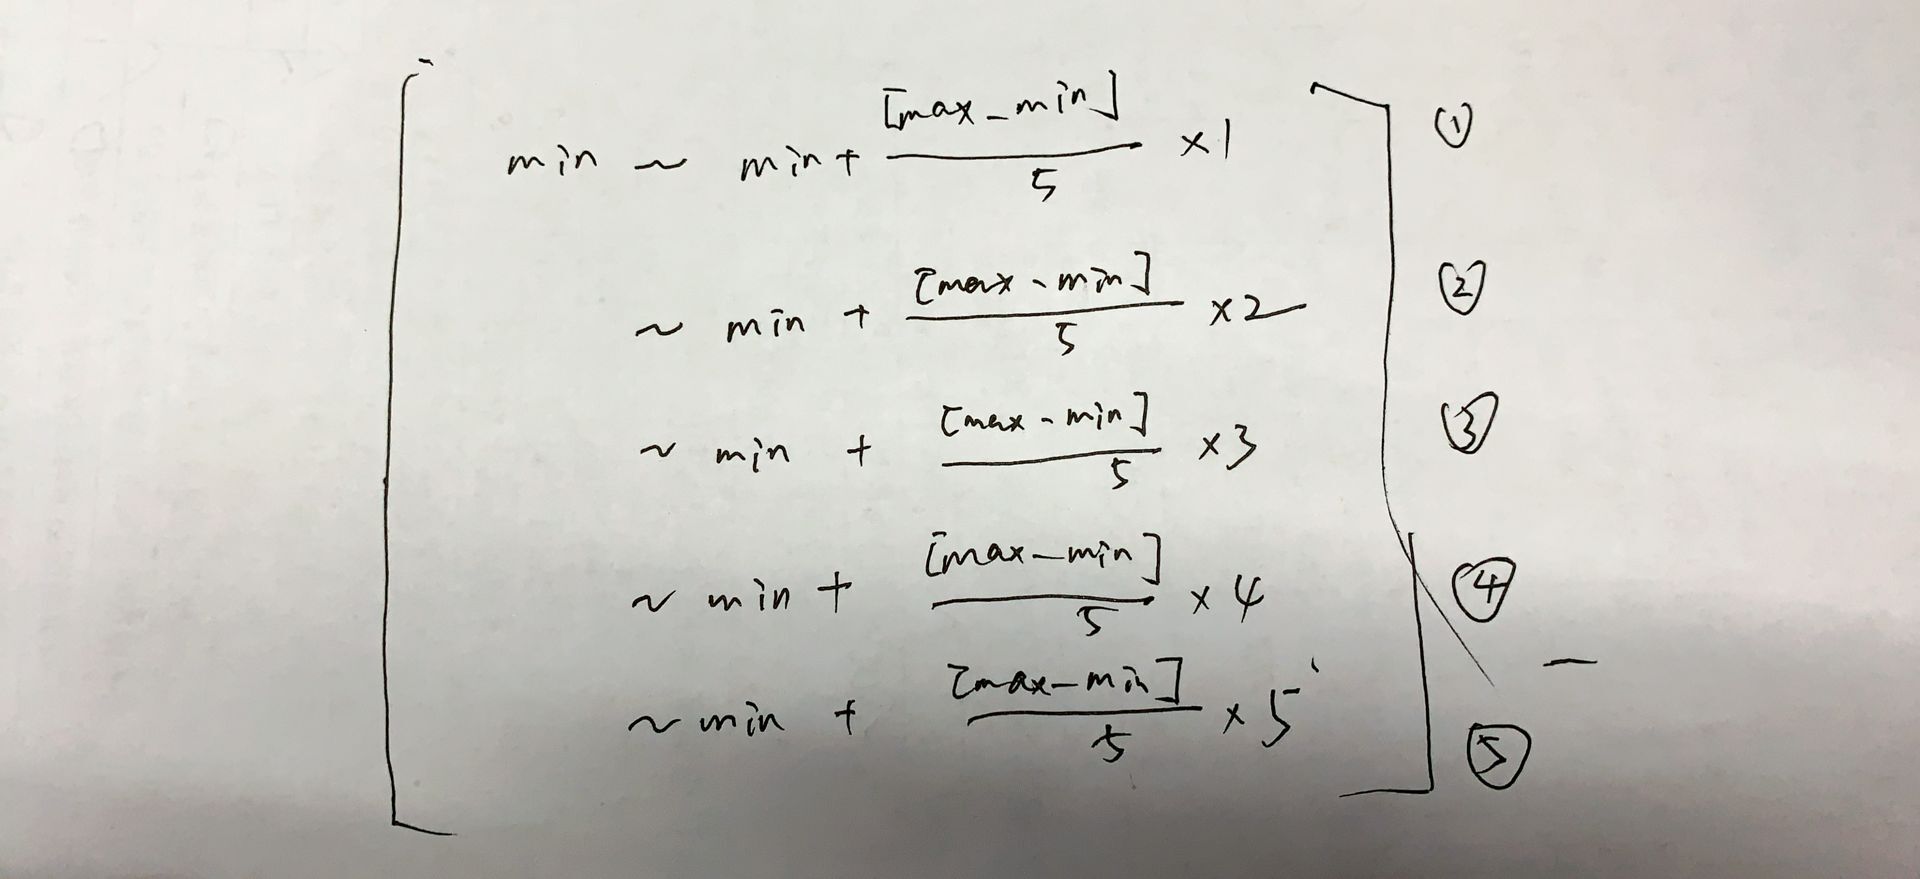 min ~ min + [max - min] / 5 ×1 ①
~ min + [max - min] / 5 ×2 ②
~ min + [max - min] / 5 ×3 ③
~ min + [max - min] / 5 ×4 ④
~ min + [max - min] / 5 ×5 ⑤